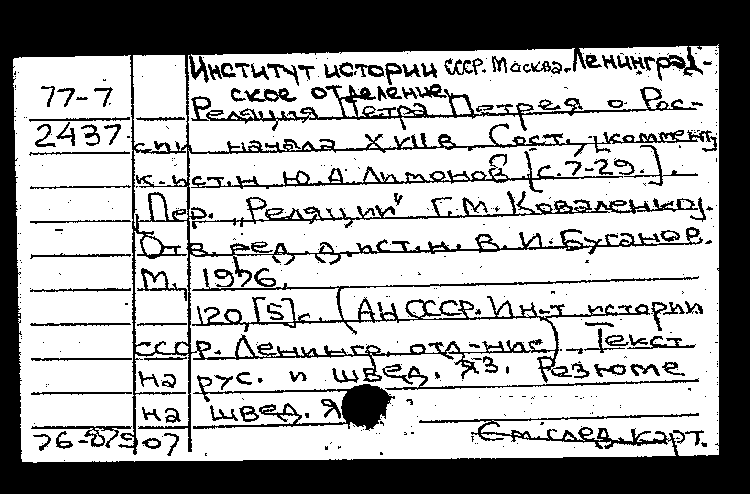 Институт истории СССР. Москва. Ленинград-
ское отделение.
77-7
Реляция Петра Петрея о Рос-
2437
сии начала XVII в. Сост., коммент.
к.ист.н. Ю.А. Лимонов [с. 7-29.].
Пер. „Реляции" Г.М. Коваленко.
Отв. ред. д.ист.н. В.И. Буганов.
М., 1976.
120, [5] с. (АН СССР. Ин-т истории
СССР. Ленингр. отд-ние). Текст
на рус. и швед. яз. Резюме
на швед. я
76-87907
См. след. карт.